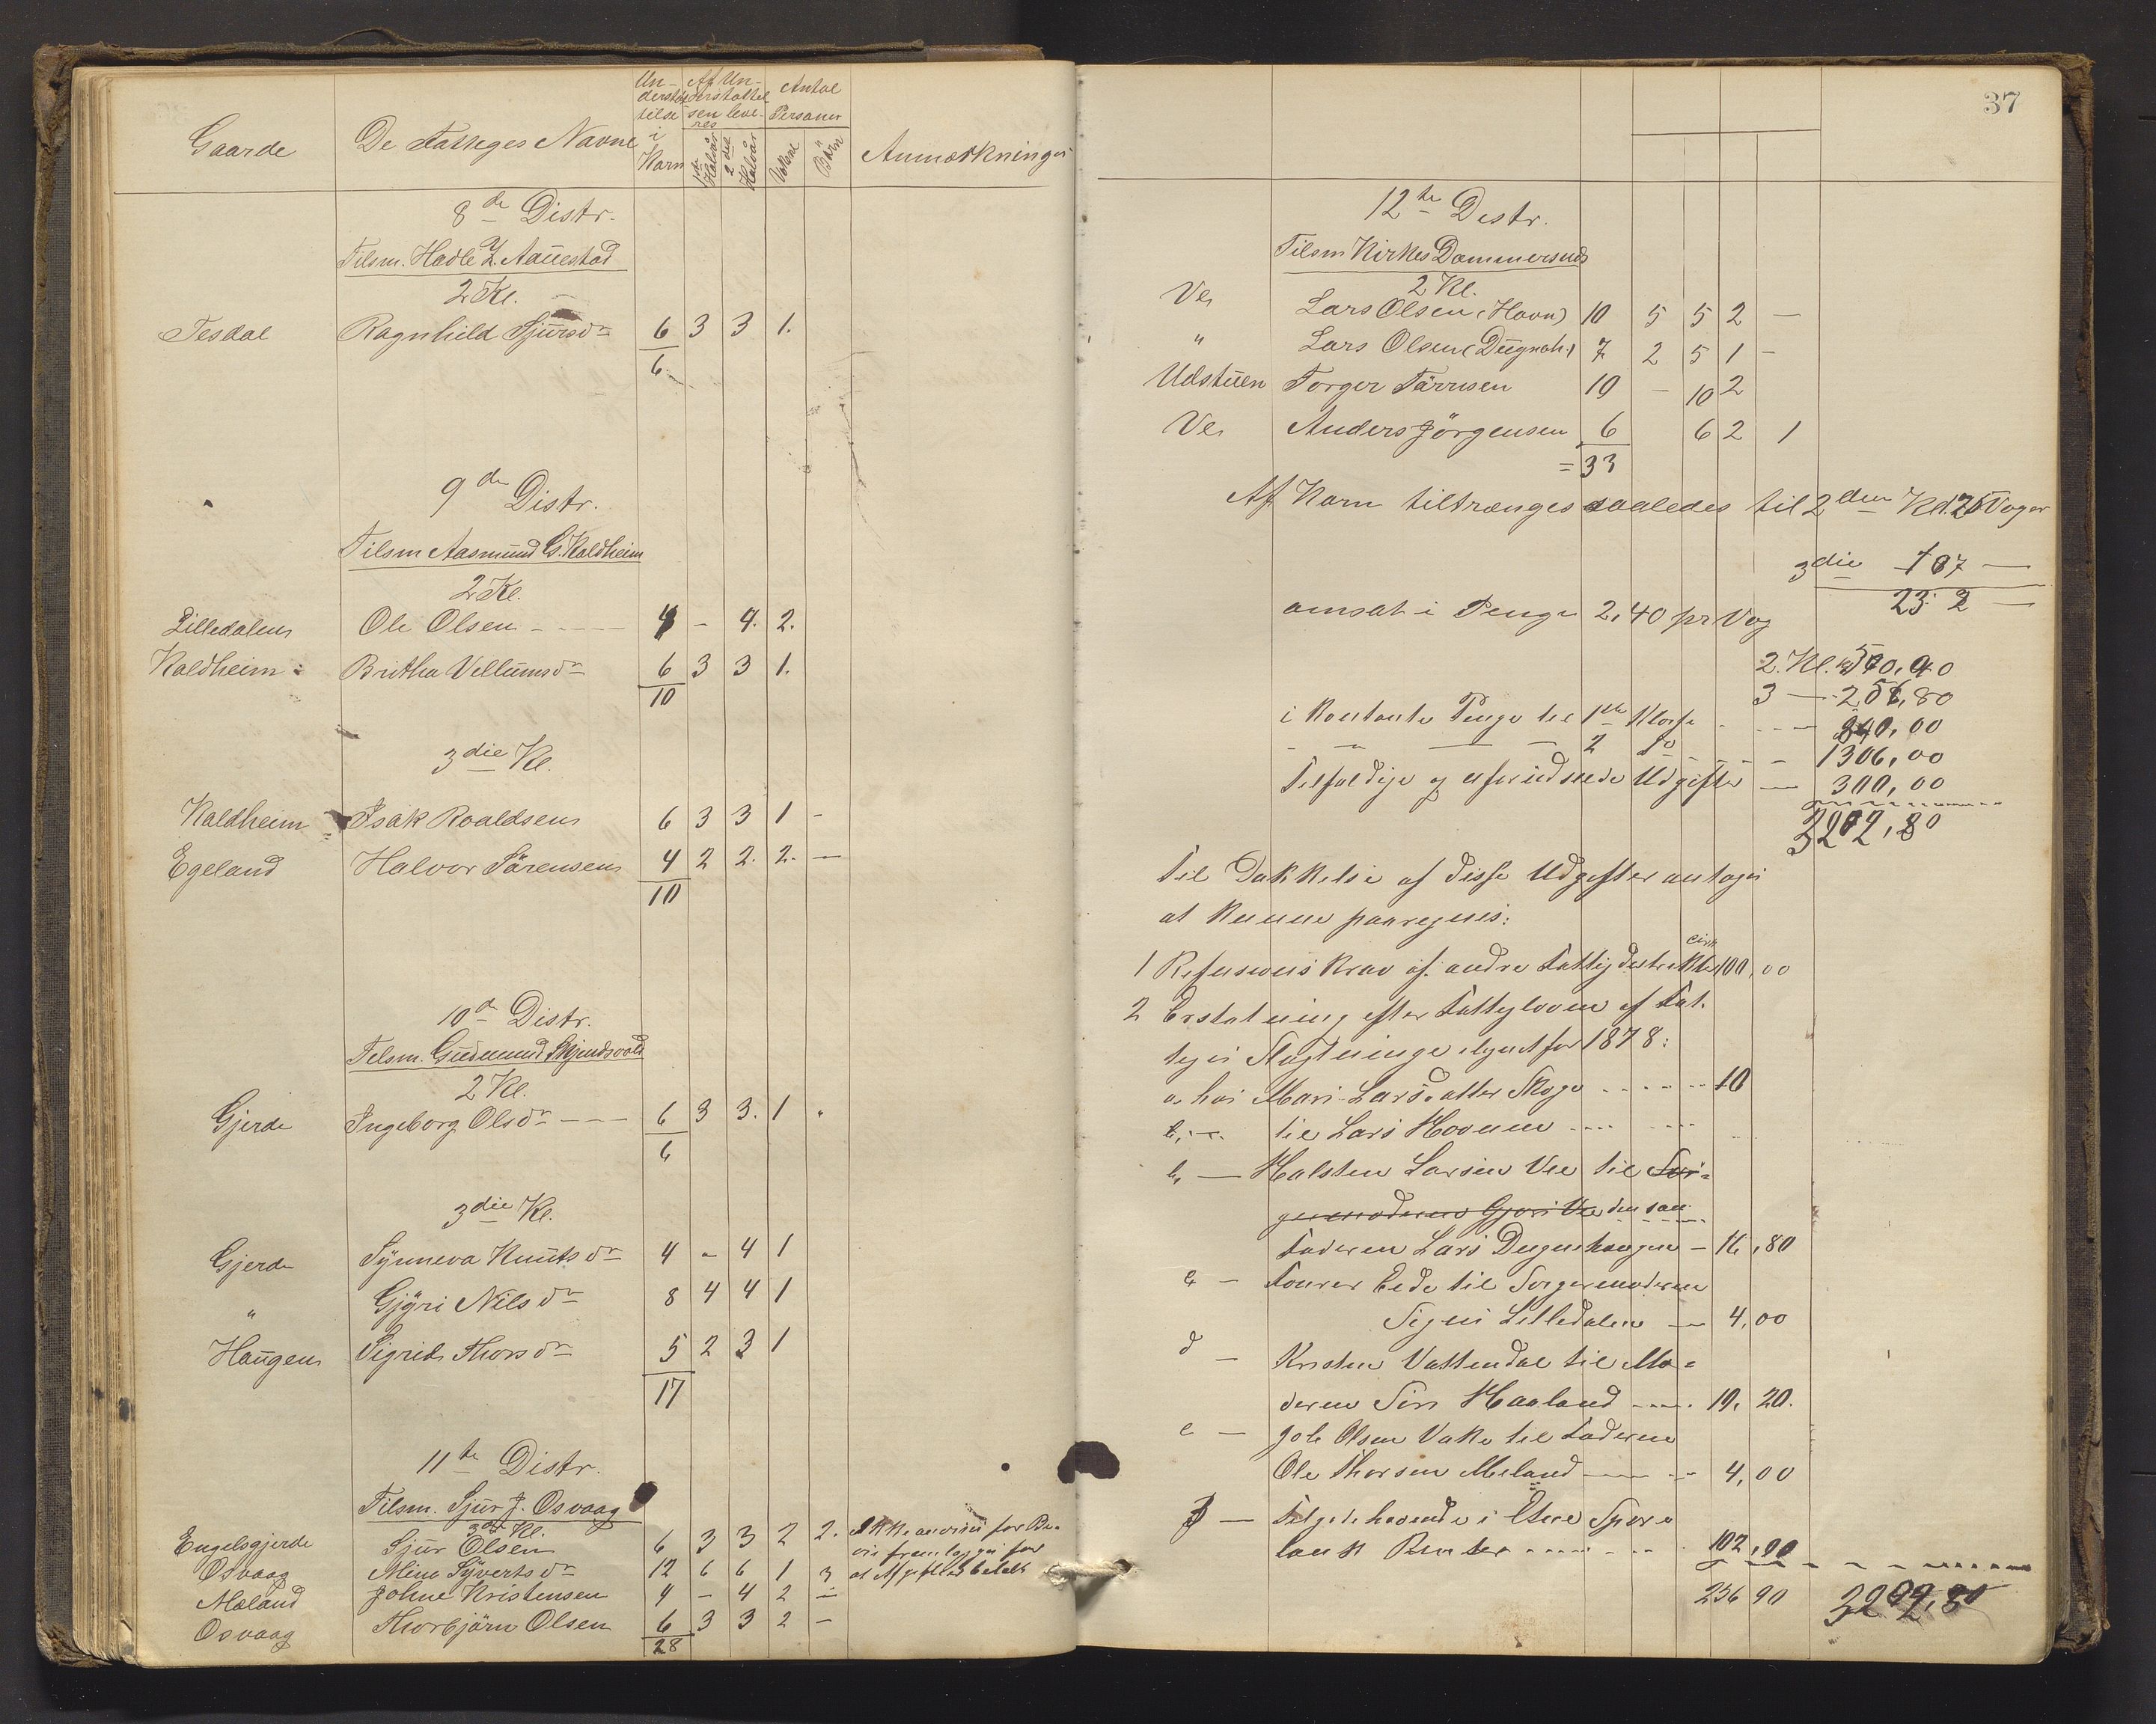 Gaarde De Fattiges Navne Understøttelse i Korn Af Understøttelsen leveres 1ste Halvår 2det Halvår Antal Personer Voksne Börn Anmærkninger
8de Distr.
Tilsm. Hadle Z. Aauestad
2 Kl.
Tesdal Ragnhild Sjursdr 6 3 3 1.
6
9de Distr.
Tilsm Aasmund G. Kaldheim
2 Kl.
Lilledalen Ole Olsen 4 - 4. 2.
Kaldheim Britha Vellumsdr 6 3 3 1.
10
3die Kl.
Kaldheim Isak Roaldsen 6 3 3 1 -
Egeland Halvor Sörensen 4 2 2. 2. -
10
10de Distr.
Tilsm. Gudmund Skjendsvold
2 Kl.
Gjerde Ingeborg Olsdr 6 3 3. 1 "
6
3die Kl.
Gjerde Synneva Knutsdr 4 - 4 1
" Gjöri Nilsdr 8 4 4 1
Haugen Sigrid Thorsdr 5 2 3 1
17
11te Distr.
Tilsm. Sjur J. Osvaag
3die Kl.
Engelsgjerde Sjur Olsen 6 3 3 2 2. Ikke anvises før Be-
vis fremlægges for
Osvaag Mina Syvertsdr 12 6 6 1 3 at Afgiften betalt
Mæland Johne Kristensen 4 - 4 2 -
Osvaag Thorbjörn Olsen 6 3 3 2 -
28
37
12te Distr.
Tilsm Kirkes Dommersnes
2 Kl.
Ve Lars Olsen (Hovn) 10 5 5 2 -
" Lars Olsen (Dugneh.) 7 2 5 1 -
Udstuen Torger Tärresen 10 - 10 2
Ve Anders Jörgensen 6 6 2 1
= 33
Af Korn tiltrænges saaledes til 2den Kl. Voger
3die 107 -
232 -
omsat i Penge 2,40 pr Vog
2. Kl. 
3 - 256,80
i kontante Penge til 1ste Klasse - 840,00
- - - - 2 do - 1306,00
Tilfældige og uforudseede Udgifter - 300,00
3202,80
Til Dækkelse af disse Udgifter antages
at kunne paaregnes:
1 Refusionskrav af andre Fattigdistrikter cirk 100,00
2 Erstatning efter Fattigloven af Fat-
tiges Slægtninge ilignet for 1878:
a, hos Mari Larsdatter Skoge 10
b, - til Lars Hovnen
b, - Halsten Larsen Vee til Svi-
germoderen Gjori Vee den san
Faderen Lars Dugnehaugen - 16,80
c - Tourer Eede til Svigermoderen
Signi Lilledalen - 4,00
d - Kristen Vattendal til Mo-
deren Siri Haaland 19, 20.
e - Joh Olsen Vake til Faderen
Ole Thorsen Meland 4,00
3 - Tilgodehavende i Etne Spare
bank Renter 102,90
256 90 3202,80